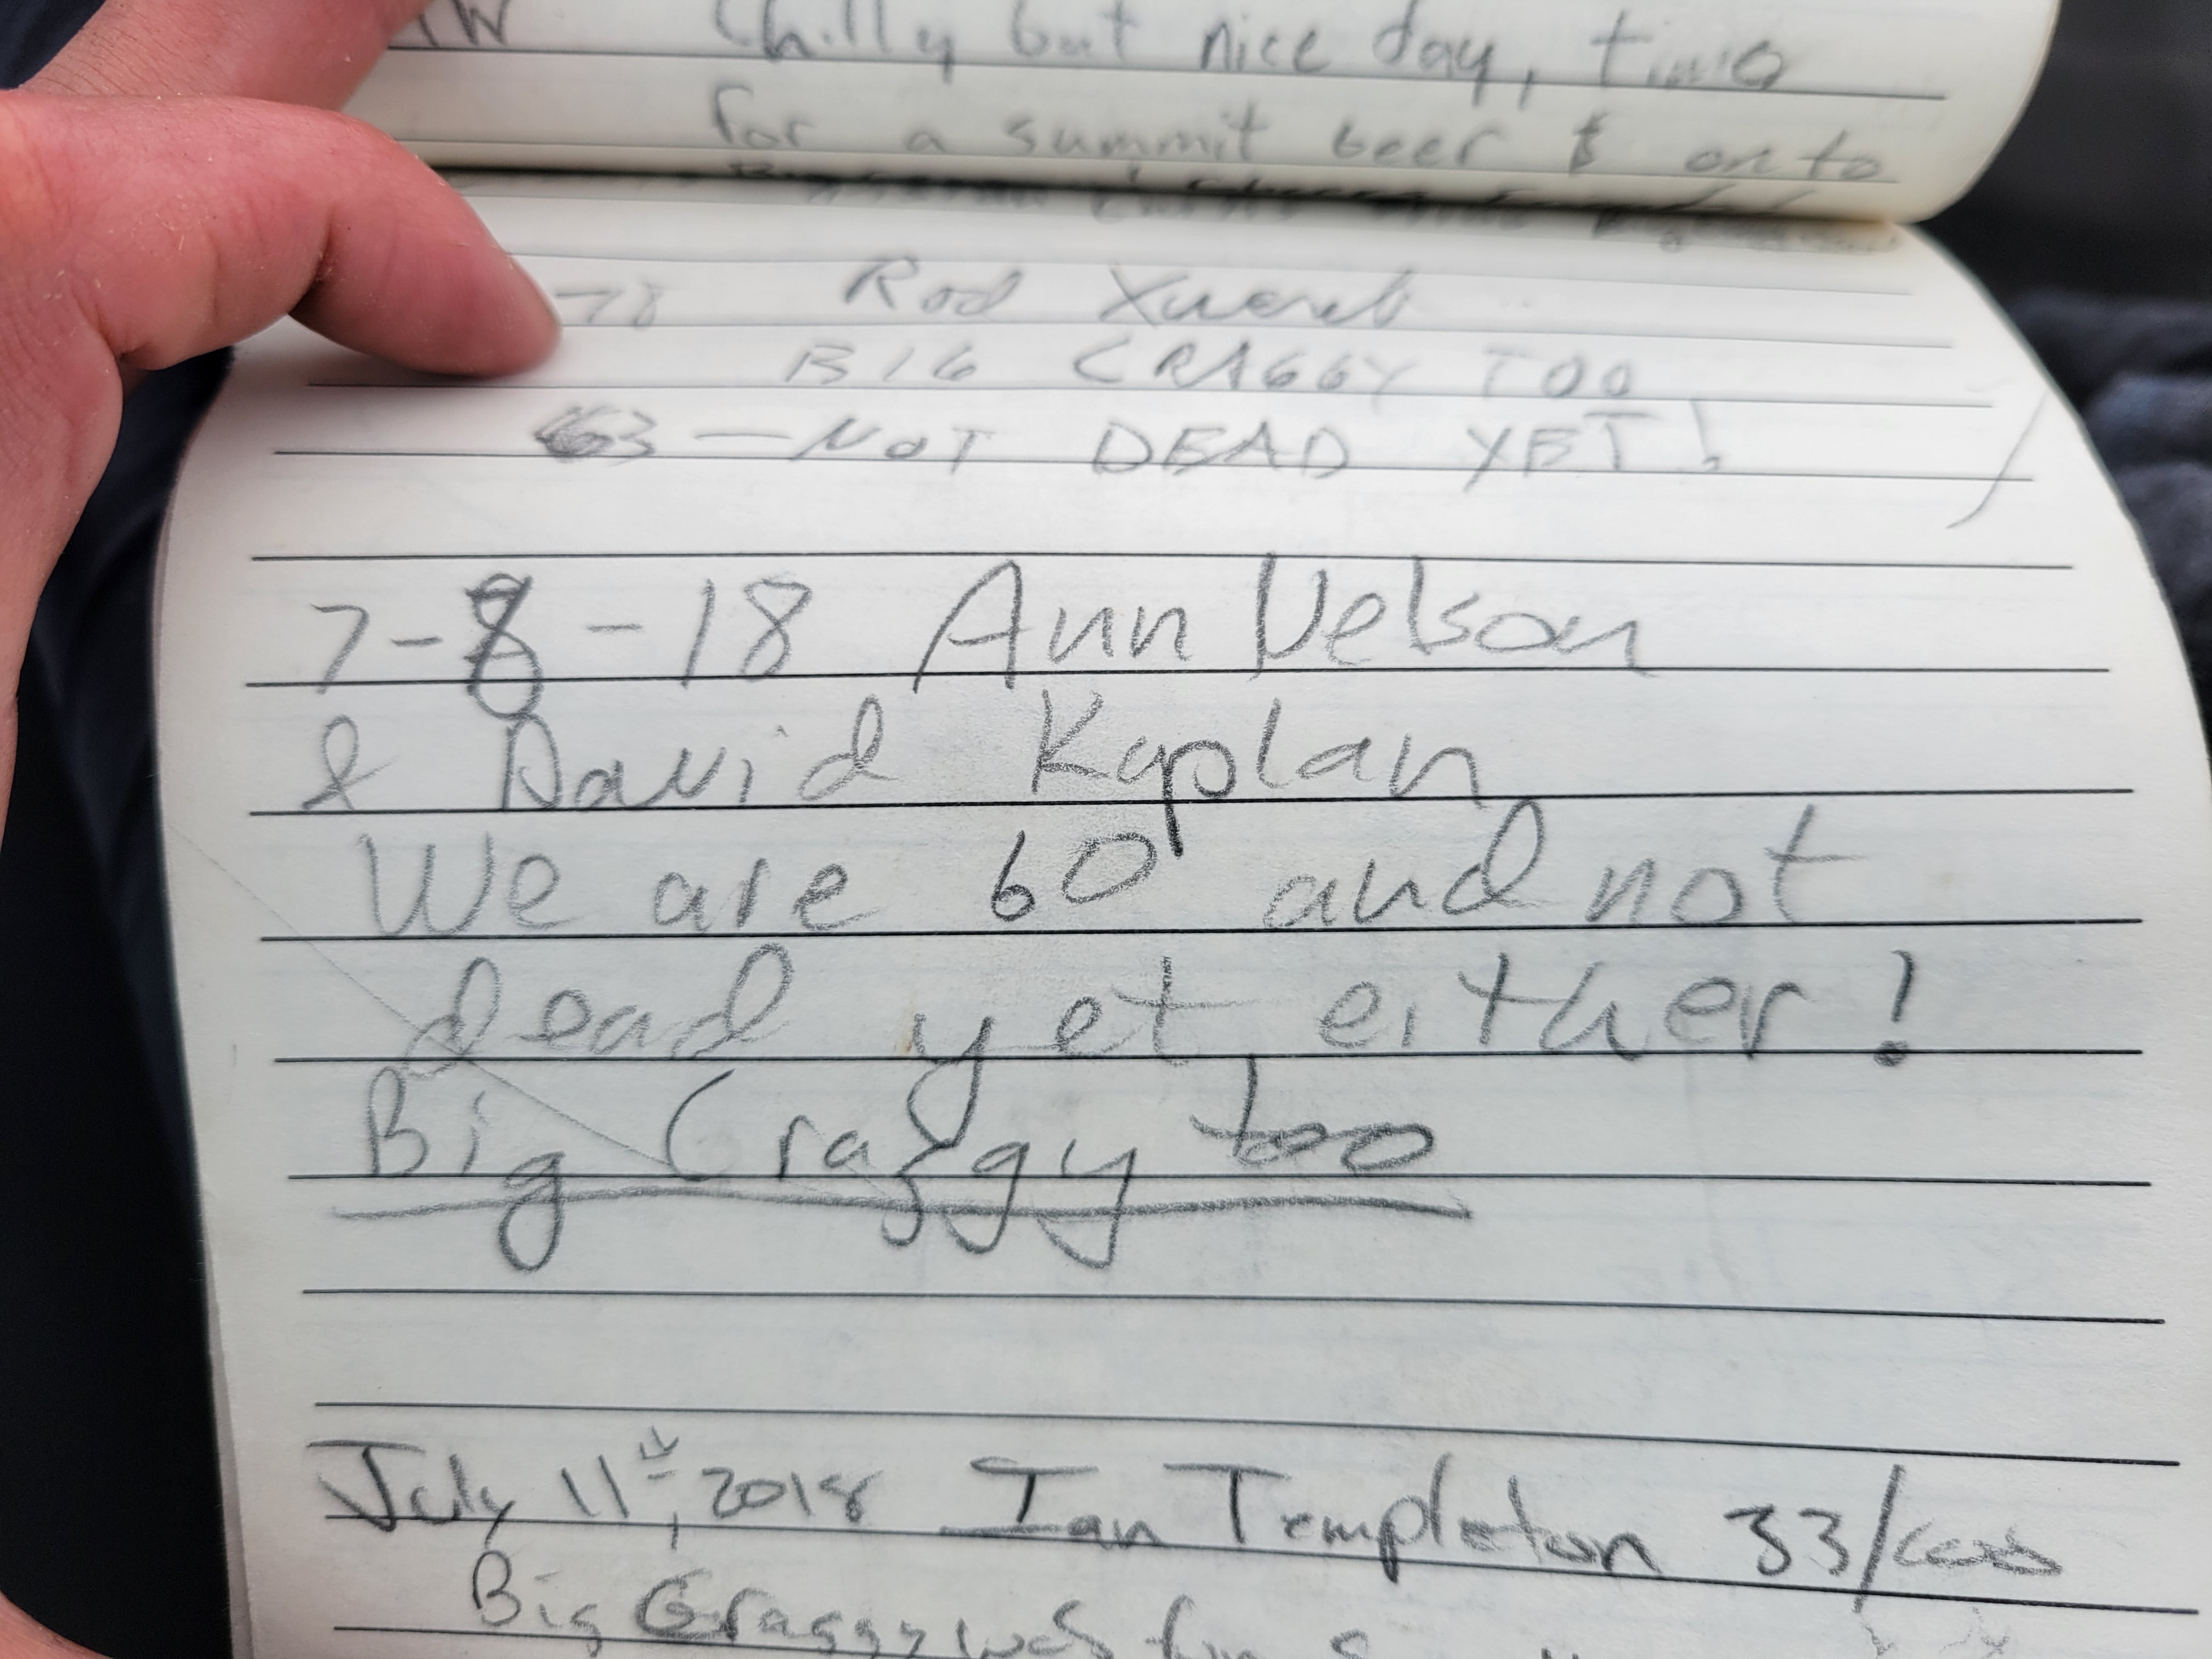 Chilly but nice day, time
for a summit beer & onto
-18 Rod
BIG CRAGGY TOO
63 — NOT DEAD YET!
7-8-18 Ann Nelson
& David Kaplan
We are 60 and not
dead yet either!
Big Craggy too
July 11th, 2018 Ian Templeton 33/
Big Craggy was fun